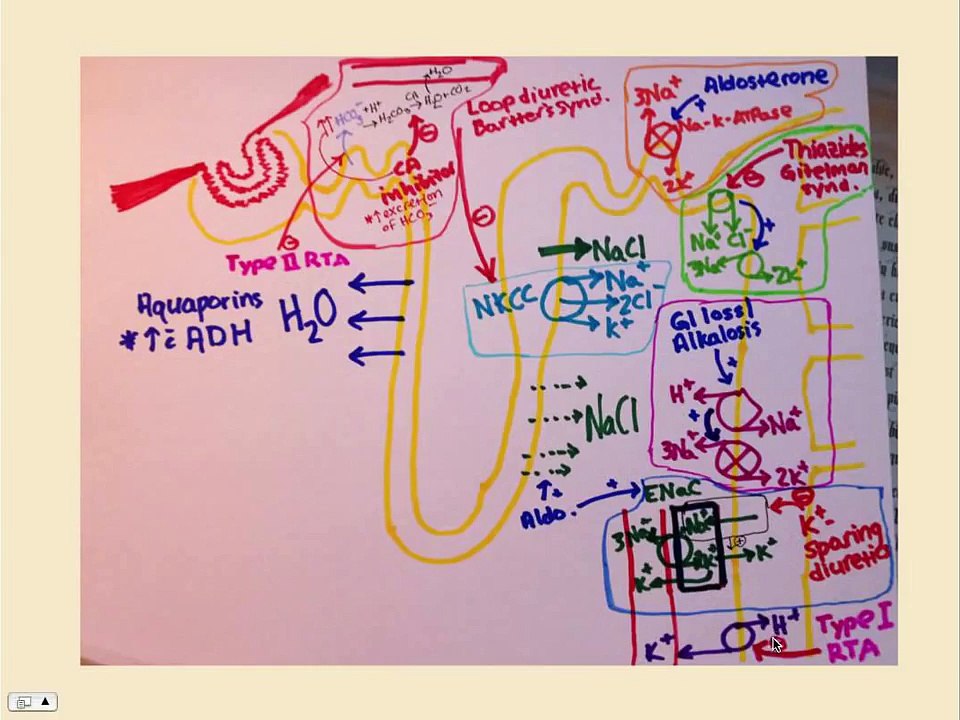 H₂O
CA
↑↑HCO₃⁻ + H⁺ → H₂CO₃ → H₂O + CO₂
CA
inhibitor
*↑excretion
of HCO₃⁻
Type II RTA
Loop diuretic
Bartter's synd.
3Na⁺
Aldosterone
+
Na-K-ATPase
2K⁺
Thiazides
Gitelman
synd.
Na⁺ Cl⁻
3Na
2K⁺
Aquaporins
*↑c̄ ADH
H₂O
NaCl
NKCC
Na⁺
2Cl⁻
K⁺
GI loss
Alkalosis
+
H⁺
Na⁺
+
3Na⁺
2K⁺
NaCl
↑+
Aldo.
+
ENaC
3Na
Na⁺
2K⁺
K⁺
K⁺
K⁺-
Sparing
diuretic
H⁺
K⁺
Type I
RTA